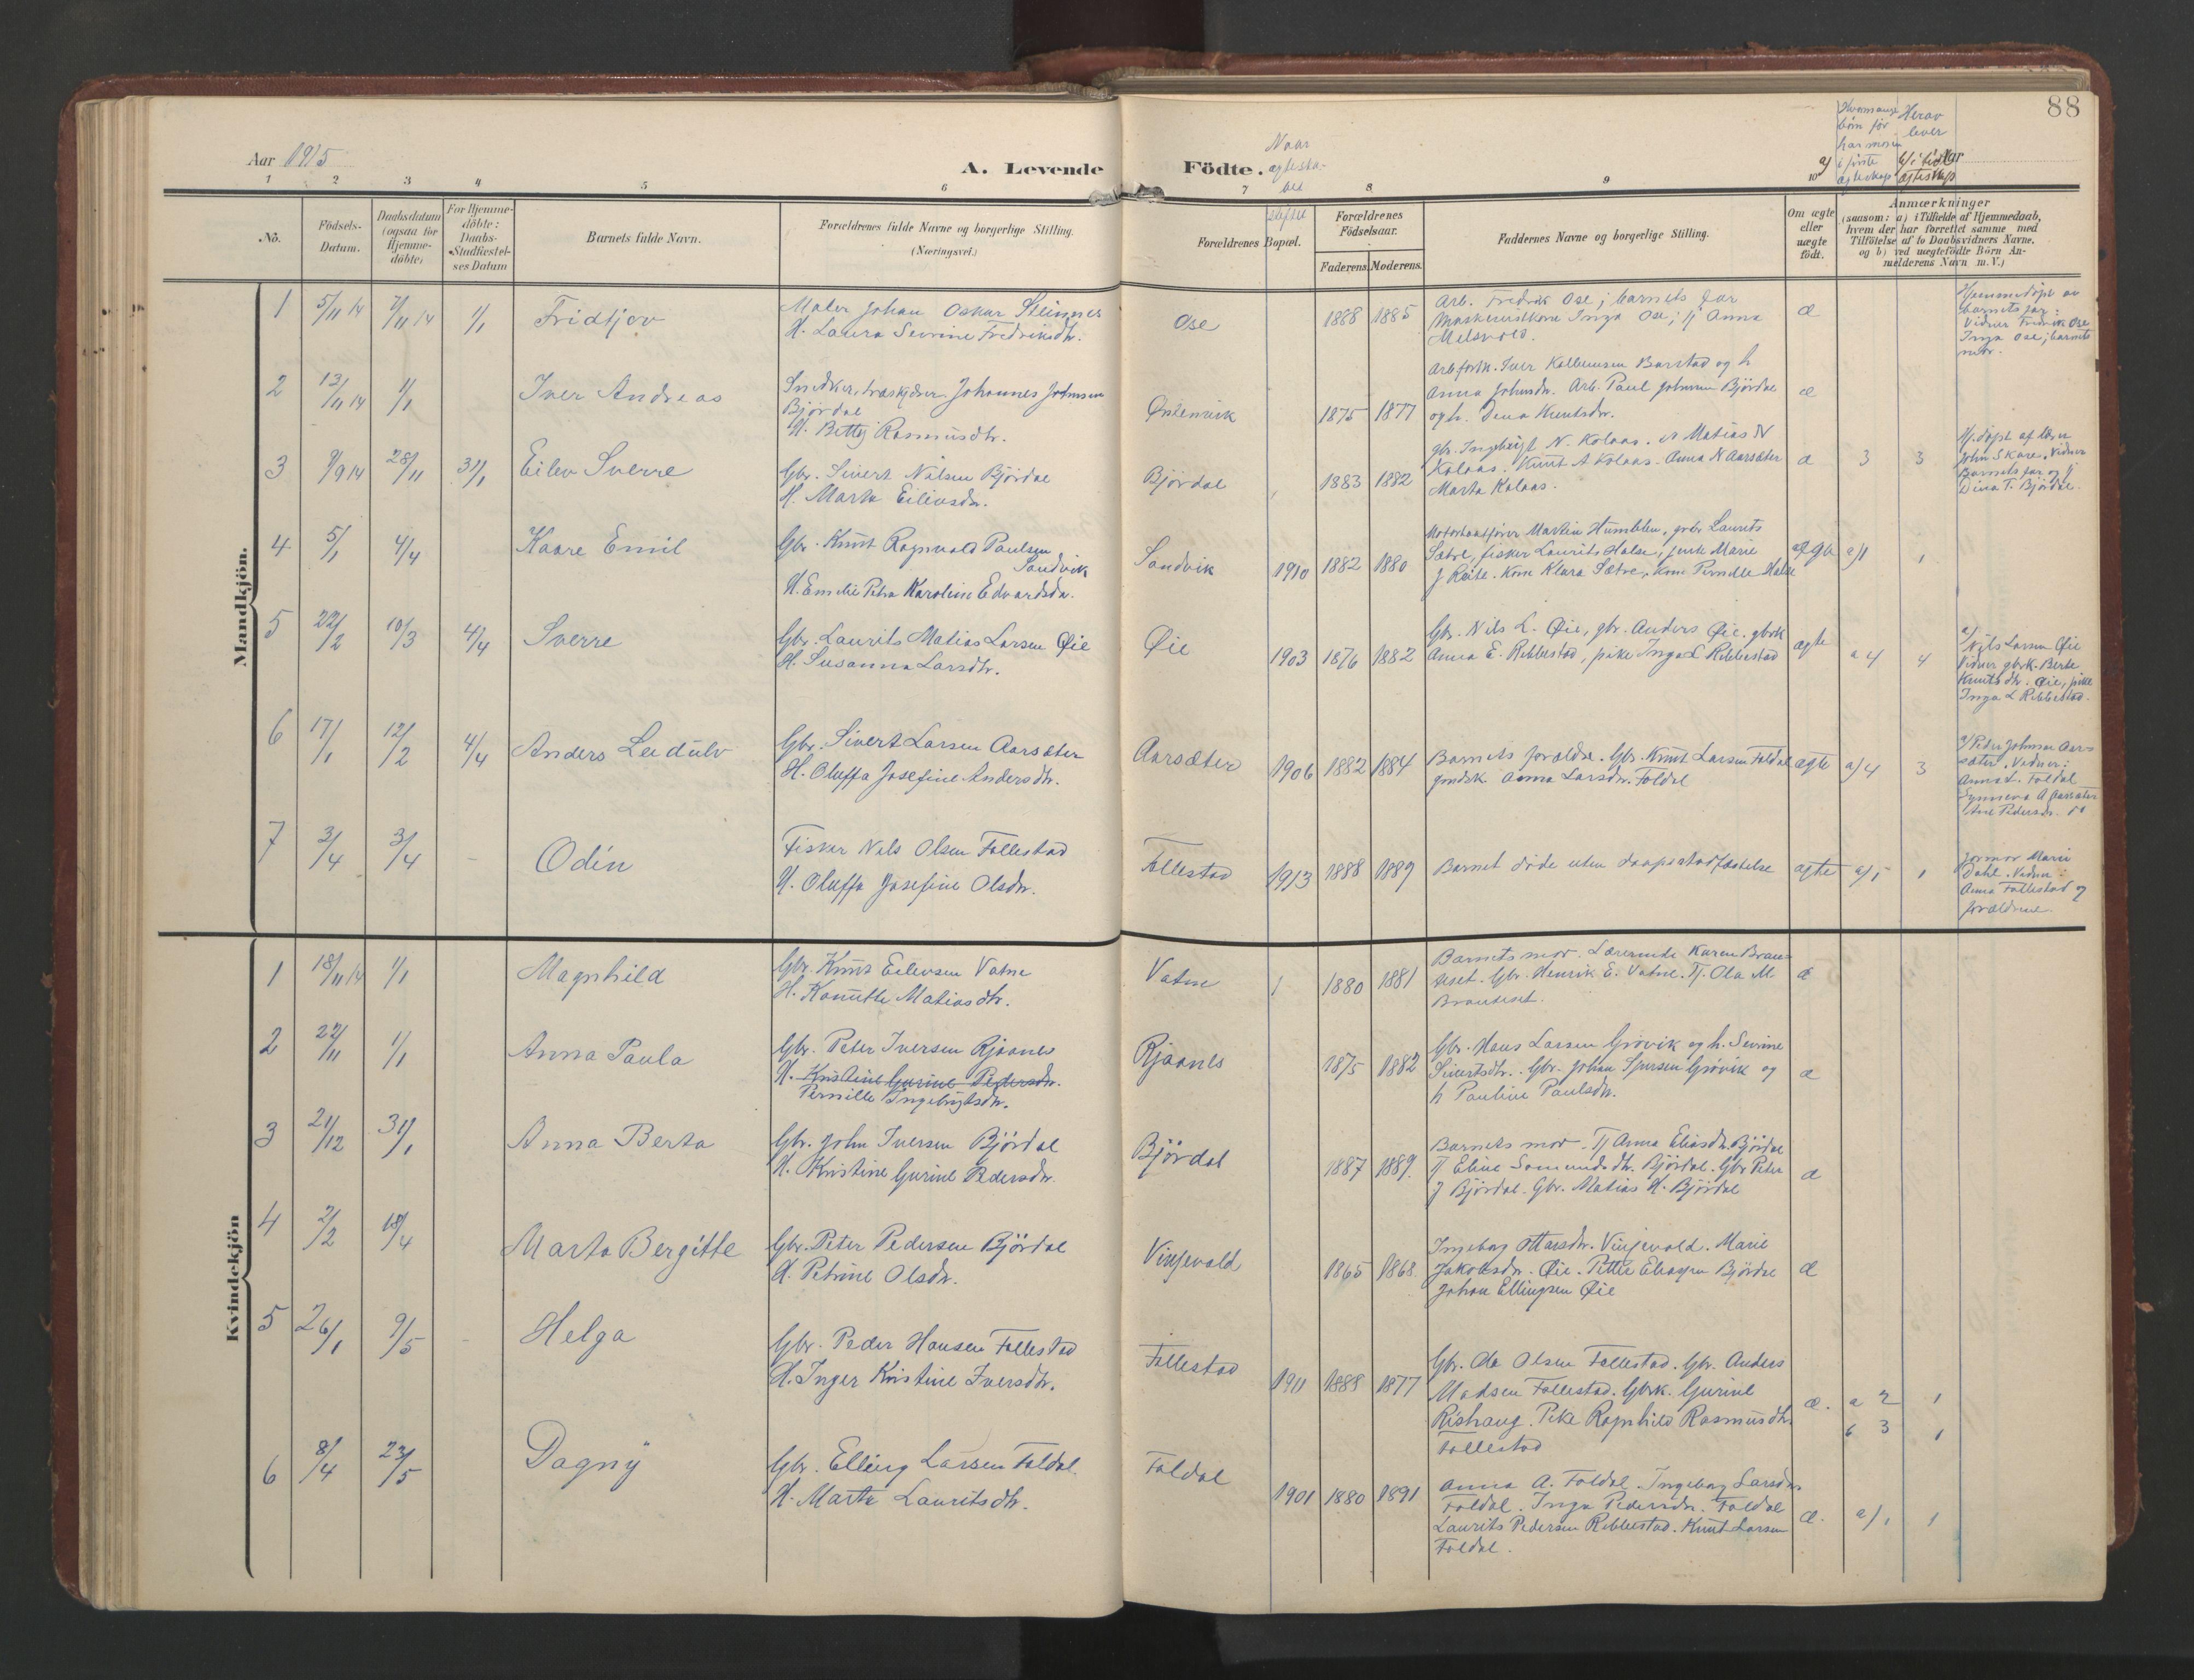 88
Aar 1915
A. Levende Födte.
Naar
ægteska-
bet
Herav
lever
1 2 3 4 5 6 7 8 9 10
No.
Födsels-
Datum.
Daabsdatum
(ogsaa for
Hjemme-
döbte)
For Hjemme-
döbte:
Daabs-
Stadfæstel-
ses Datum
Barnets fulde Navn.
Forældrenes fulde Navne og borgerlige Stilling.
(Næringsvei.)
Forældrenes Bopæl.
Forældrenes
Födselsaar.
Faderens. Moderens.
Faddernes Navne og borgerlige Stilling.
Om ægte
eller
uægte
født.
Anmærkninger
(saasom: a) i Tilfælde af Hjemmedaab,
hvem der har forrettet samme med
Tilföielse af to Daabsvidners Navne,
og b) ved uægtefödte Börn An-
melderens Navn m. V.)
Mandkjön.
1 5/11 14 7/11 14 1/1 Fridtjov
Maler Johan Oskar Steinnes
H. Laura Sevrine Fredriksdtr.
Ose 1888 1885
Arb. Fredrik Ose; barnets far
Inga Ose; Tj Anna
Melsvold.
æ
Hjemmedöpt av
barnets far:
Vidner Fredrik Ose
Inga Ose; barnets
mor.
2 13/11 14 1/1 Iver Andreas
Snedker, træskjærer Johannes Johnsen
Bjørdal
H. Betty Rasmusdtr.
Østenvik 1875 1877
Arbform. Iver Kolbeinsen Barstad og h
Anna Johnsdtr. Arb. Paul Johnsen Björdal
og h. Dena Knutsdtr.
æ
3 9/9 14 28/11 31/1 Eilev Sverre
Gbr. Sivert Nilsen Bjørdal
H. Marta Eilevsdtr.
Bjørdal 1883 1882
gbr. Ingebrigt N. Kolaas. Matias N
Kolaas. Knut A Kolaas. Anna N Aarsæter
Marta Kolaas.
æ 3 3
Hj.döpt af lærer
John Skare. Vidner
Barnets far og Tj
Dina T. Bjørdal.
4 5/1 4/4 Kaare Emil
Gbr. Knut Ragnvald Paulsen
Sandvik
H. Emelie Petra Karoline Edvardsdtr.
Sandvik 1910 1882 1880
Motorbaatfører Martin Humblen, gbr Laurits
Sætre, fisker Laurits Halse, Marie
J Reite. Kone Klara Sætre, Kone Pernille Halse
ægte a/1 1
5 22/2 10/3 4/4 Sverre
Gbr. Laurits Matias Larsen Øie
H. Susanna Larsdtr.
Øie 1903 1876 1882
Gbr. Nils L. Øie, gbr. Anders Øie. gbrk
Anna E. Ribbestad, pike Inga L Ribbestad
ægte a 4 4
a/ Nils Larsen Øie
Vidner gbrk. Berte
Knutsdtr. Øie, pike
Inga L Ribbestad.
6 17/1 12/2 4/4 Anders Leidulv
Gbr. Sivert Larsen Aarsæter
H. Oluffa Josefine Andersdtr.
Aarsæter 1906 1882 1884
Barnets foraldre. Gbr. Knut Larsen Foldal
Anna Larsdtr. Foldal
ægte a/4 3
a/ Peder Johnsen Aar-
sæter. Vidner:
Anna L. Foldal
Synneva A Aarsæter
Ane Pedersdtr. do
7 3/4 3/4 - Odin
Fisker Nils Olsen Follestad
H. Oluffa Josefine Olsdtr.
Follestad 1913 1888 1889
Barnet døde uten daapsstadfæstelse
ægte a/1 1
Jormor Marie
Dahl. Vidner:
Anna Follestad og
forældrene.
Kvindekjön
1 18/11 14 1/1 Magnhild
Gbr. Knut Eilevsen Vatne
H. Kanutte Matiasdtr.
Vatne 1880 1881
Barnets mor. Lærerinde Karen Brau-
teset. Gbr. Henrik E. Vatne. Tj. Ola M
Brauteset.
æ
2 22/11 1/1 Anna Paula
Gbr. Peter Iversen Rjaanes
H. Kristine Gurine Pedersdtr.
Pernille Ingebrigtsdtr.
Rjaanes 1875 1882
Gbr. Hans Larsen Grøvik og h. Sevrine
Sivertsdtr. Gbr. Johan Sjursen Grøvik og
h Pauline Paulsdtr.
æ
3 21/12 31/1 Anna Berta
Gbr. John Iversen Bjørdal
H. Kristine Gurine Pedersdtr.
Bjørdal 1887 1889.
Barnets mor. Tj Anna Eliasdtr. Bjørdal
Tj Eline Somundsdtr. Bjørdal. Gbr Peter
J Bjørdal. Gbr. Matias H. Bjørdal
æ
4 2/2 18/4 Marta Bergitte
Gbr. Peter Pedersen Bjørdal
H. Petrine Olsdtr.
Vinjevold 1865 1868.
Ingeborg Ottarsdtr. Vinjevold. Marie
Jakobsdtr. Øie. Petter Eliassen Bjørdal
Johan Ellingsen Øie
æ
5 26/1 9/5 - Helga
Gbr. Peder Hansen Follestad
H. Inger Kristine Iversdtr.
Follestad 1911 1888 1877
Gbr. Ole Olsen Follestad. Gbr. Anders
Madsen Follestad. Gbrk. Gurine
Rishaug. Pike Ragnhild Rasmusdtr.
Follestad
æ. a 2 1
b 3 1
6 8/4 23/5 Dagny
Gbr. Elling Larsen Foldal.
H. Marta Lauritsdtr.
Foldal 1901 1880 1891
Anna A. Foldal. Ingeborg Larsdtr
Foldal. Inga Pedersdtr. Foldal
Laurits Pedersen Ribbestad. Knut Larsen
Foldal.
æ. a/1 1